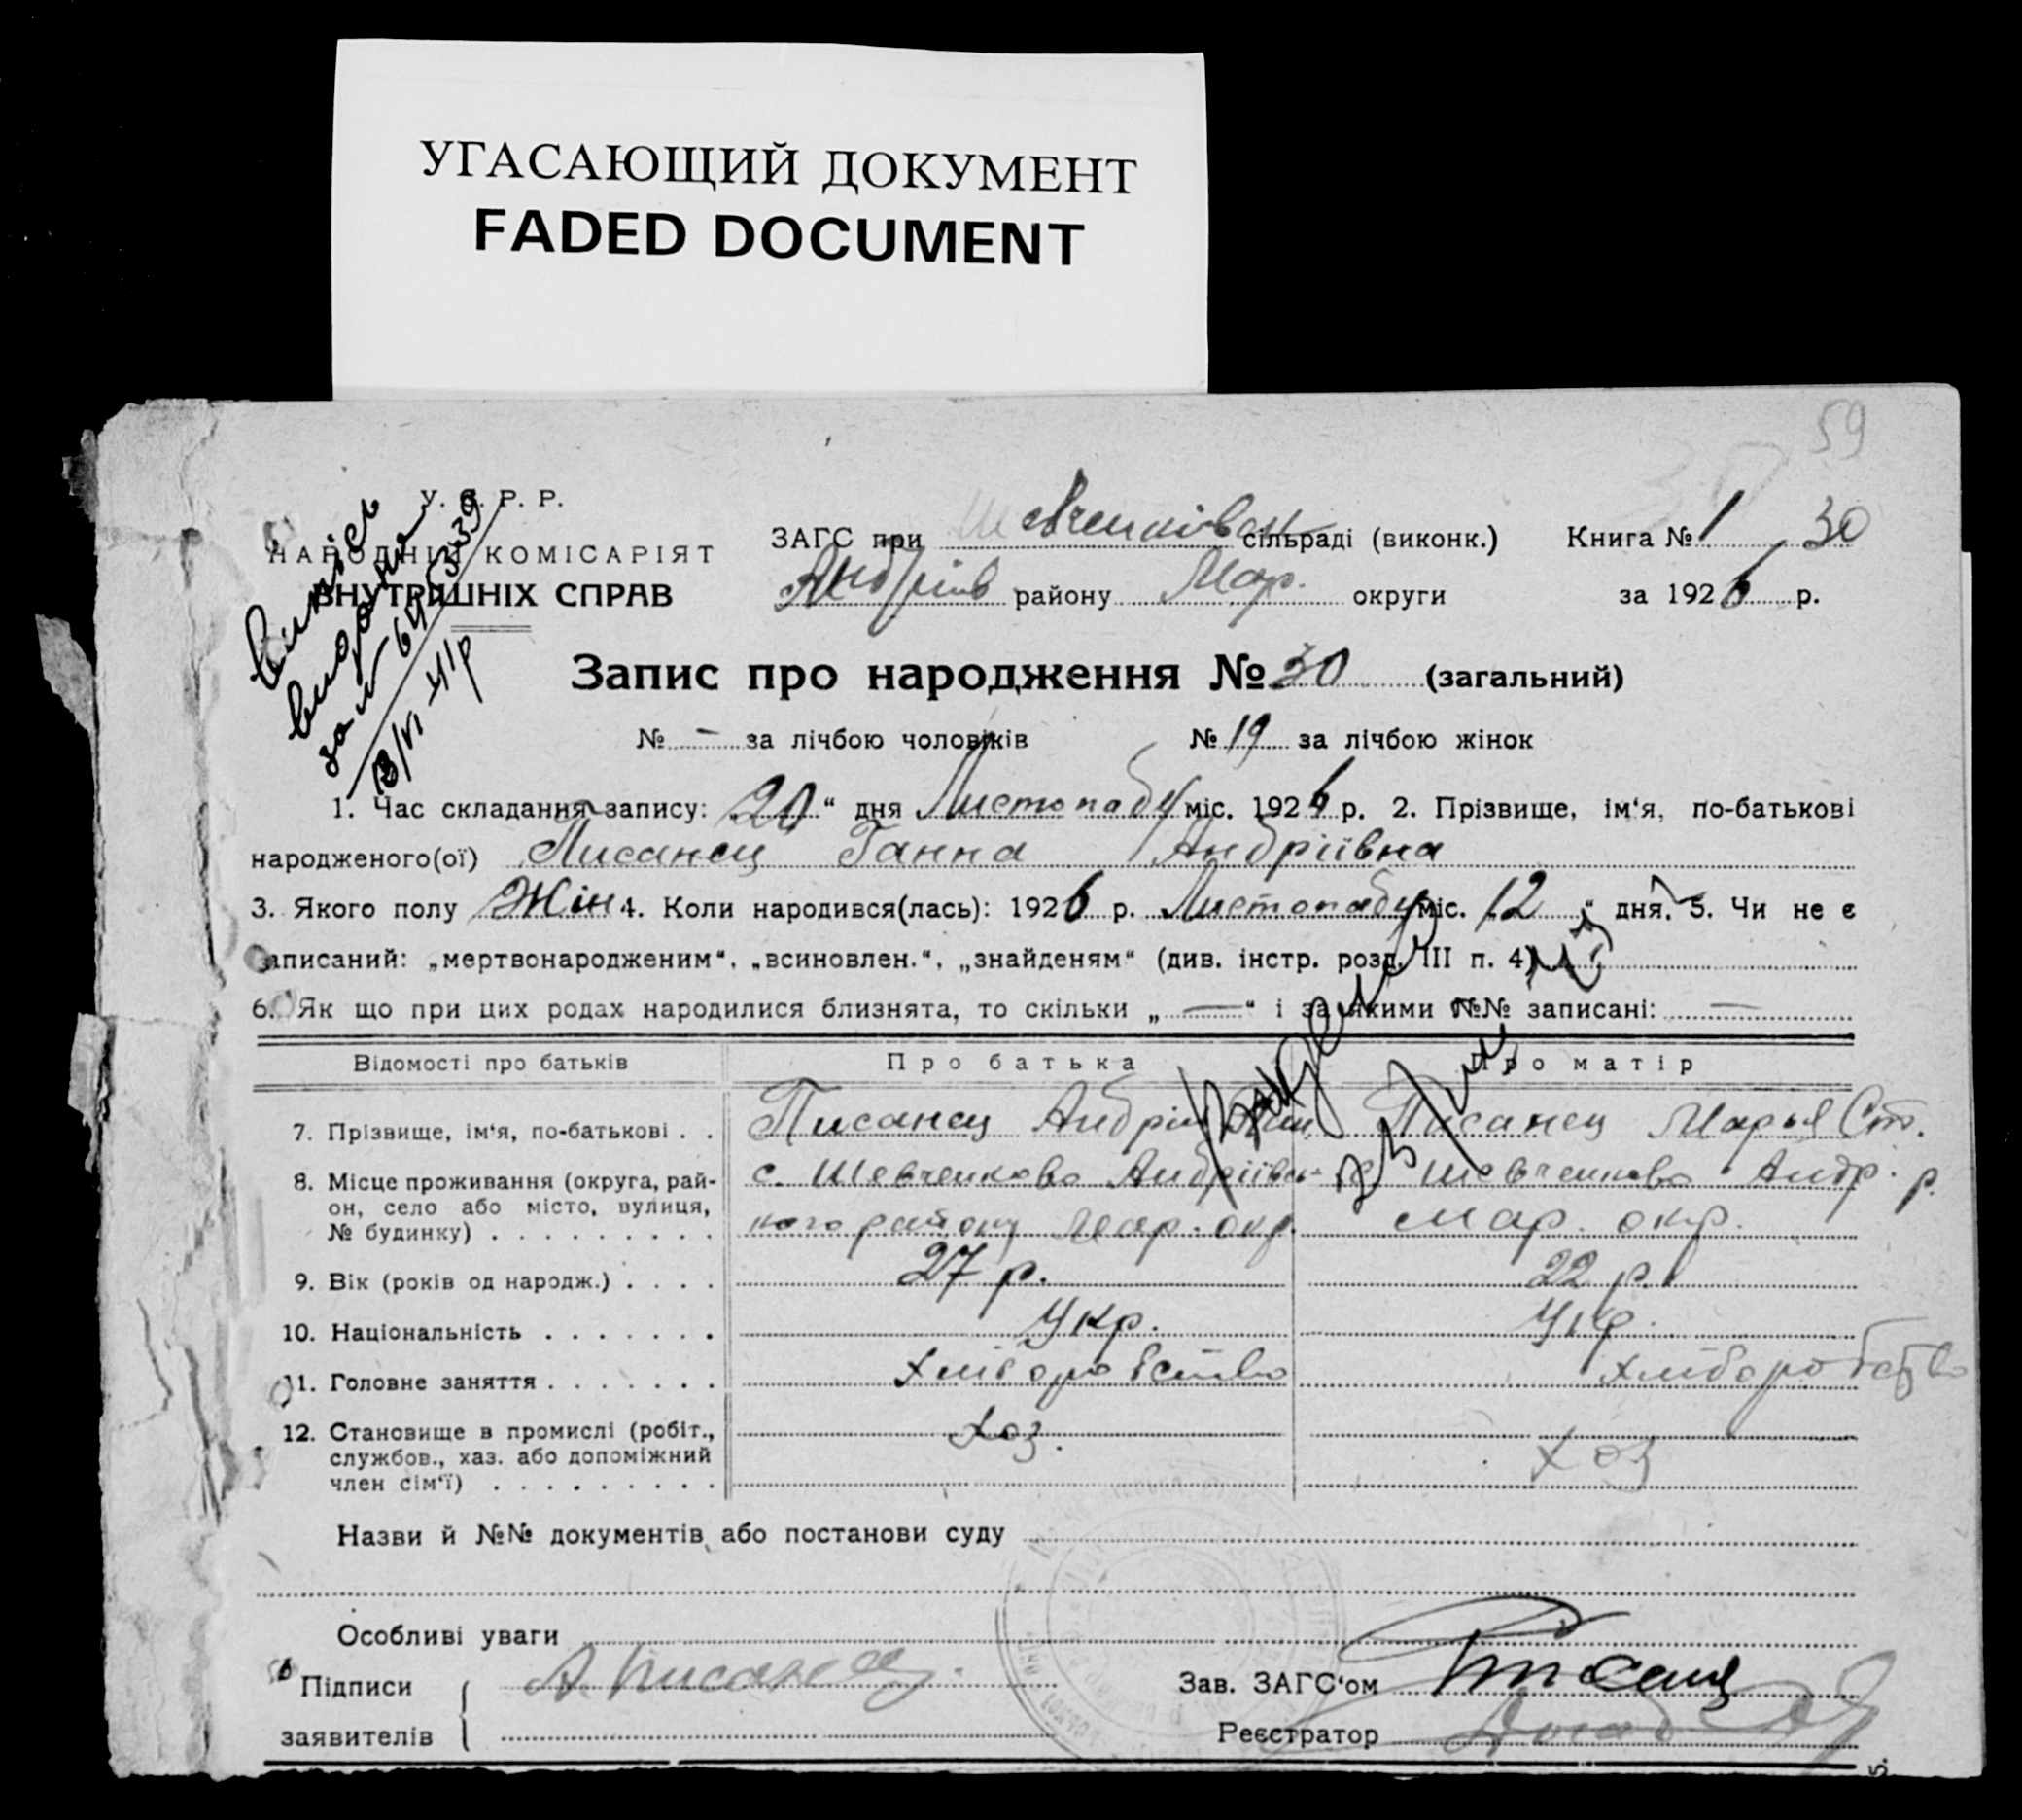 УГАСАЮЩИЙ ДОКУМЕНТ
FADED DOCUMENT
59
У. С. Р. Р.
НАРОДНІЙ КОМІСАРІЯТ
ВНУТРІШНІХ СПРАВ
Випись
видана
за № 645339
13/VI-41р
ЗАГС при Шевченківск. сільраді (виконк.) Книга № 1 30
Андріїв району Мар. округи за 1926 р.
Запис про народження № 30 (загальний)
№ - за лічбою чоловіків № 19 за лічбою жінок
1. Час складання запису: „20“ дня Листопаду міс. 1926 р. 2. Прізвище, ім‘я, по-батькові
народженого(ої) Писанец Ганна Андріївна
3. Якого полу Жін 4. Коли народився(лась): 1926 р. Листопаду міс. „12“ дня. 5. Чи не є
записаний: „мертвонародженим“, „всиновлен.“, „знайденям“ (див. інстр. розд. III п. 4)
6. Як що при цих родах народилися близнята, то скільки „—“ і за якими №№ записані: —
Відомості про батьків Про батька Про матір
7. Прізвище, ім‘я, по-батькові . . Писанец Андрій Писанец Марья Ст.
8. Місце проживання (округа, рай- с. Шевченково Андріївсь- с. Шевченково Андр. р.
он, село або місто, вулиця,
№ будинку) . . . . . . . . . кого району Мар. окр. Мар. окр.
9. Вік (років од народж.) . . . . 27 р. 22 р.
10. Національність . . . . . . . Укр. Укр.
11. Головне заняття . . . . . . . Хліборобство Хліборобство
12. Становище в промислі (робіт.,
службов., хаз. або допоміжний Хоз. Хоз
член сім‘ї) . . . . . . . . .
Назви й №№ документів або постанови суду
Особливі уваги
Підписи А. Писанец. Зав. ЗАГС‘ом Писанец
заявителів Реєстратор